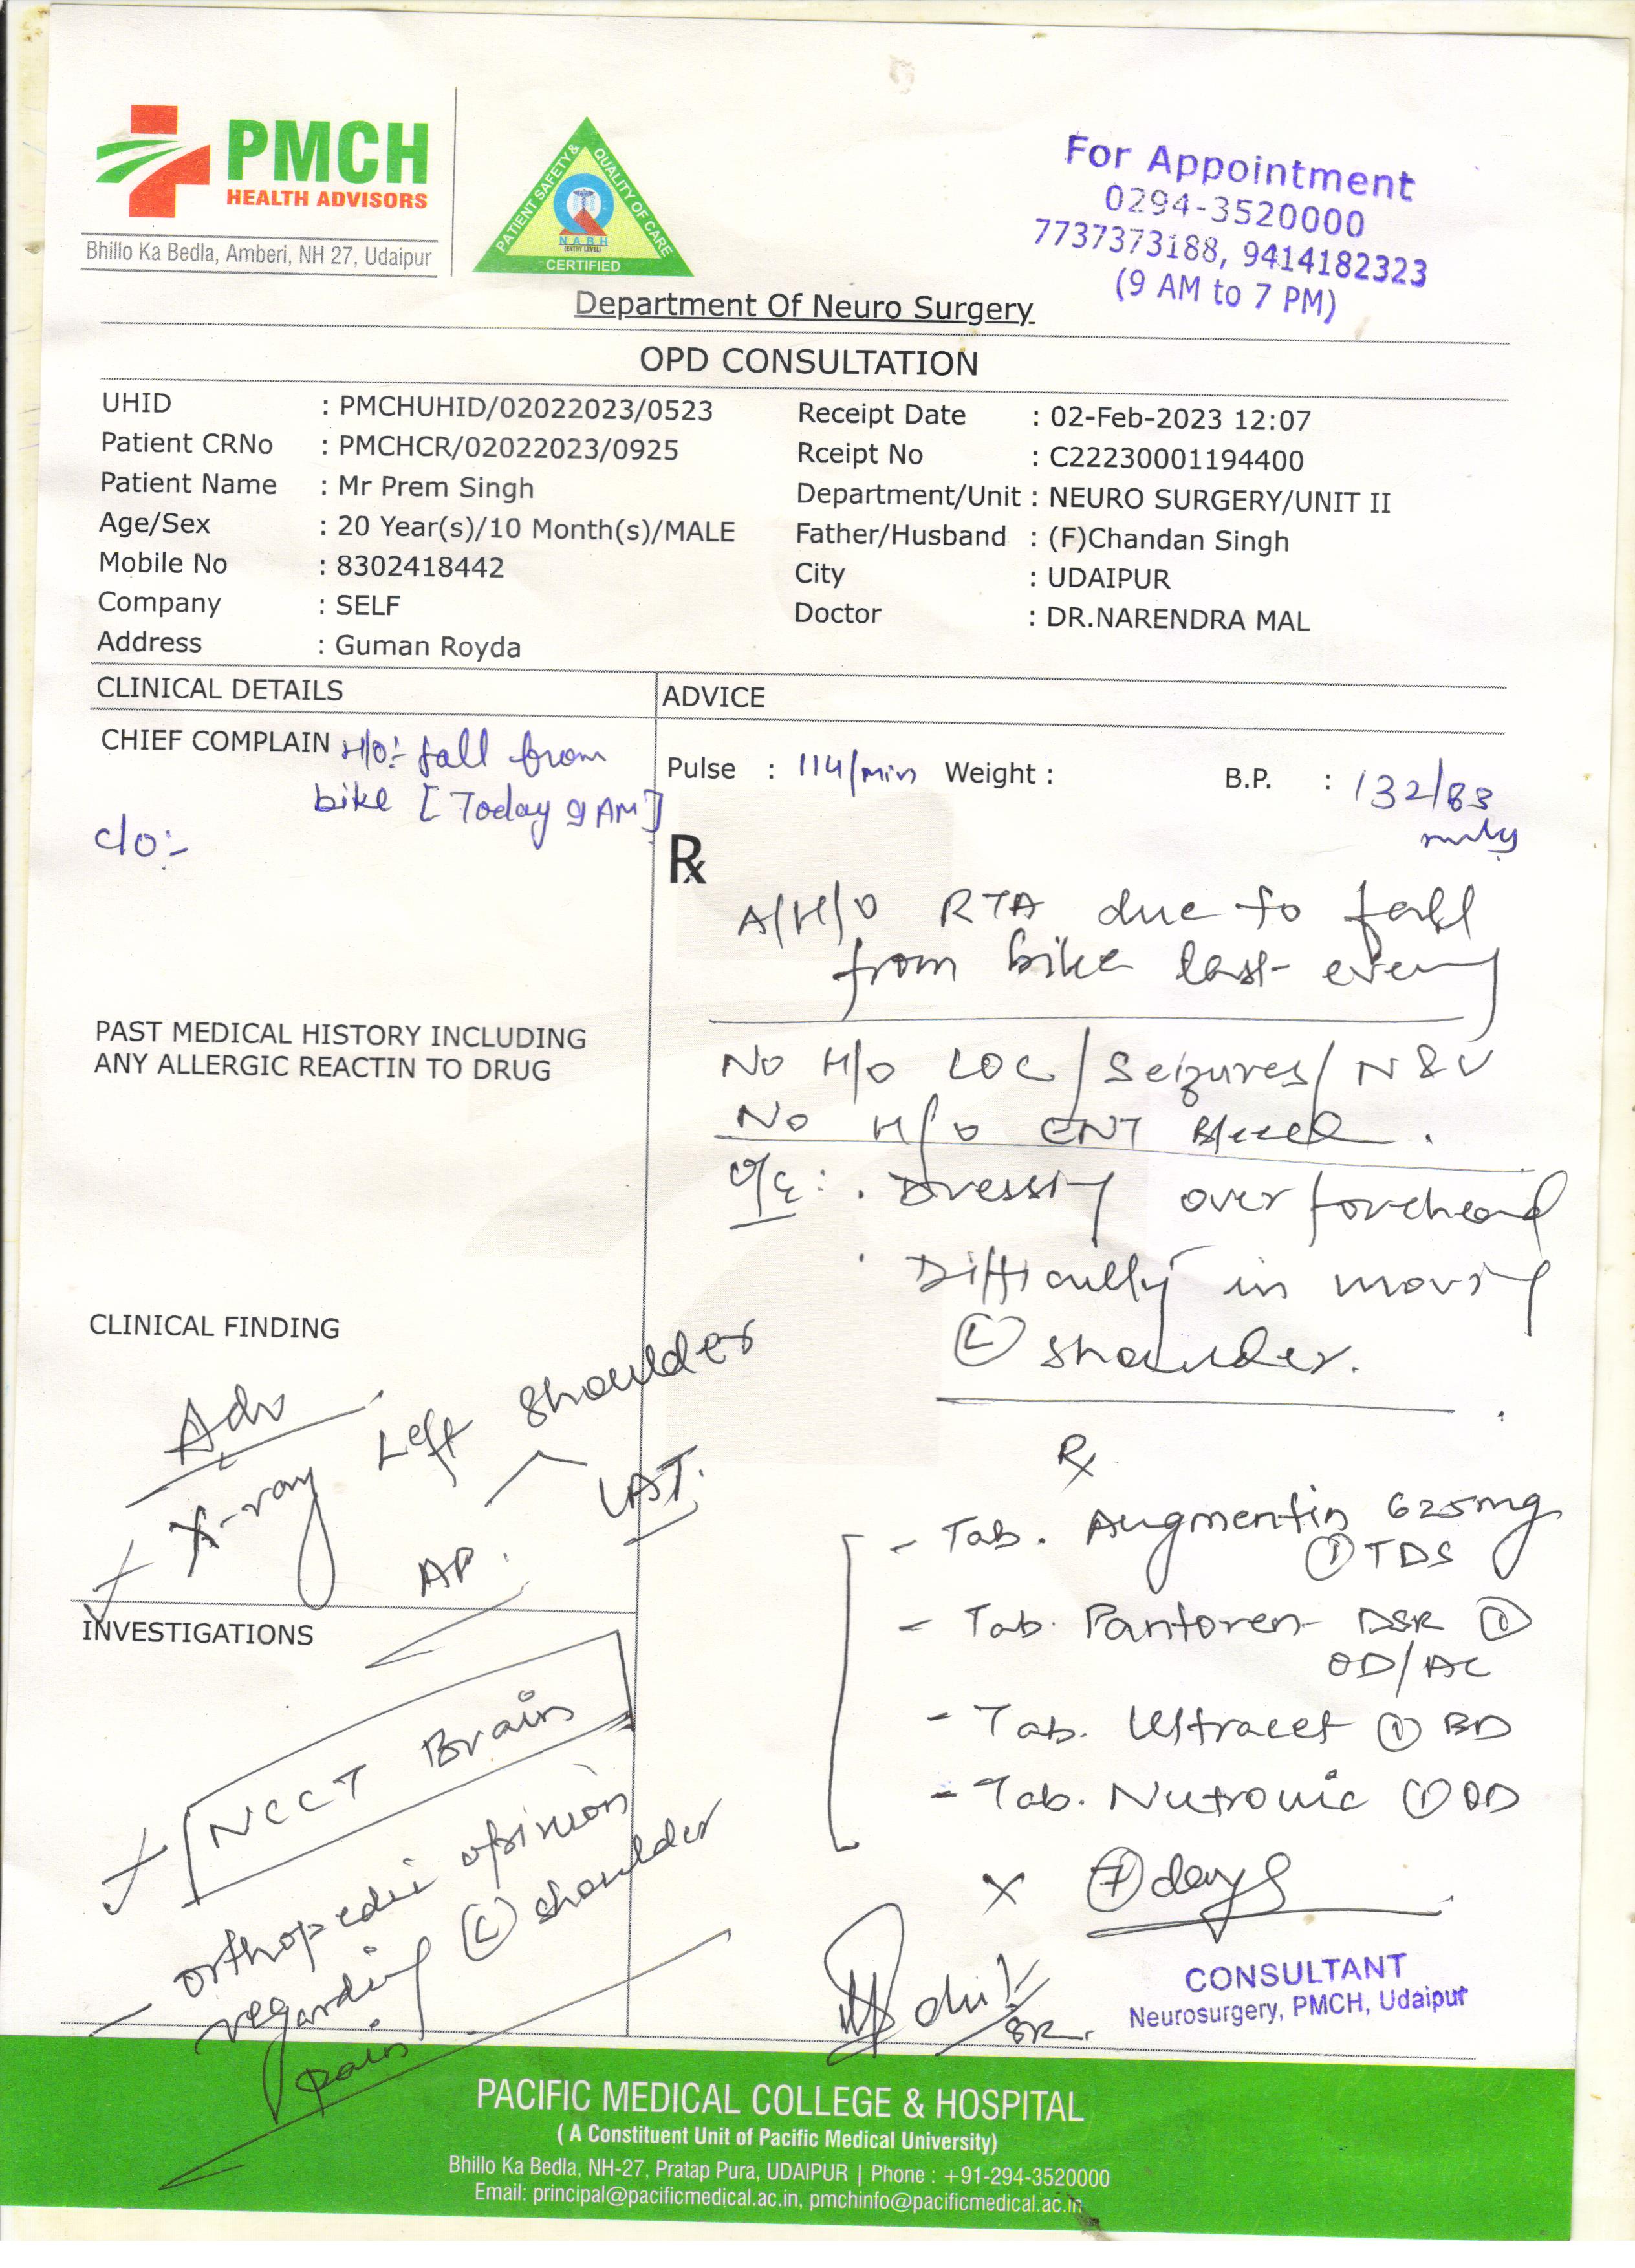 PMCH
HEALTH ADVISORS
Bhillo Ka Bedla, Amberi, NH 27, Udaipur
PATIENT SAFETY & QUALITY OF CARE
NABH
(ENTRY LEVEL)
CERTIFIED
For Appointment
0294-3520000
7737373188, 9414182323
(9 AM to 7 PM)
Department Of Neuro Surgery
OPD CONSULTATION
UHID : PMCHUHID/02022023/0523
Patient CRNo : PMCHCR/02022023/0925
Patient Name : Mr Prem Singh
Age/Sex : 20 Year(s)/10 Month(s)/MALE
Mobile No : 8302418442
Company : SELF
Address : Guman Royda
Receipt Date : 02-Feb-2023 12:07
Rceipt No : C22230001194400
Department/Unit : NEURO SURGERY/UNIT II
Father/Husband : (F)Chandan Singh
City : UDAIPUR
Doctor : DR.NARENDRA MAL
CLINICAL DETAILS
CHIEF COMPLAIN H/O:- fall from
bike [Today 9 AM]
c/o:-
PAST MEDICAL HISTORY INCLUDING
ANY ALLERGIC REACTIN TO DRUG
CLINICAL FINDING
Adv
X-ray Left Shoulder
AP. LAT.
INVESTIGATIONS
NCCT Brain
- orthopedic opinion
regarding (L) shoulder
pain
ADVICE
Pulse : 114/min Weight : B.P. : 132/83
mmhg
Rx
A/H/O RTA due to fall
from bike last evening
No H/o LOC/Seizures/N&V
No H/o ENT Bleed.
O/E: . Dressing over forehead
. Difficulty in moving
(L) shoulder.
Rx
- Tab. Augmentin 625mg
(1) TDS
- Tab. Pantoren- DSR (1)
OD/AC
- Tab. Ultracet (1) BD
- Tab. Nutronic (1) OD
x (7) days
SR.
CONSULTANT
Neurosurgery, PMCH, Udaipur
PACIFIC MEDICAL COLLEGE & HOSPITAL
( A Constituent Unit of Pacific Medical University)
Bhillo Ka Bedla, NH-27, Pratap Pura, UDAIPUR | Phone : +91-294-3520000
Email: principal@pacificmedical.ac.in, pmchinfo@pacificmedical.ac.in